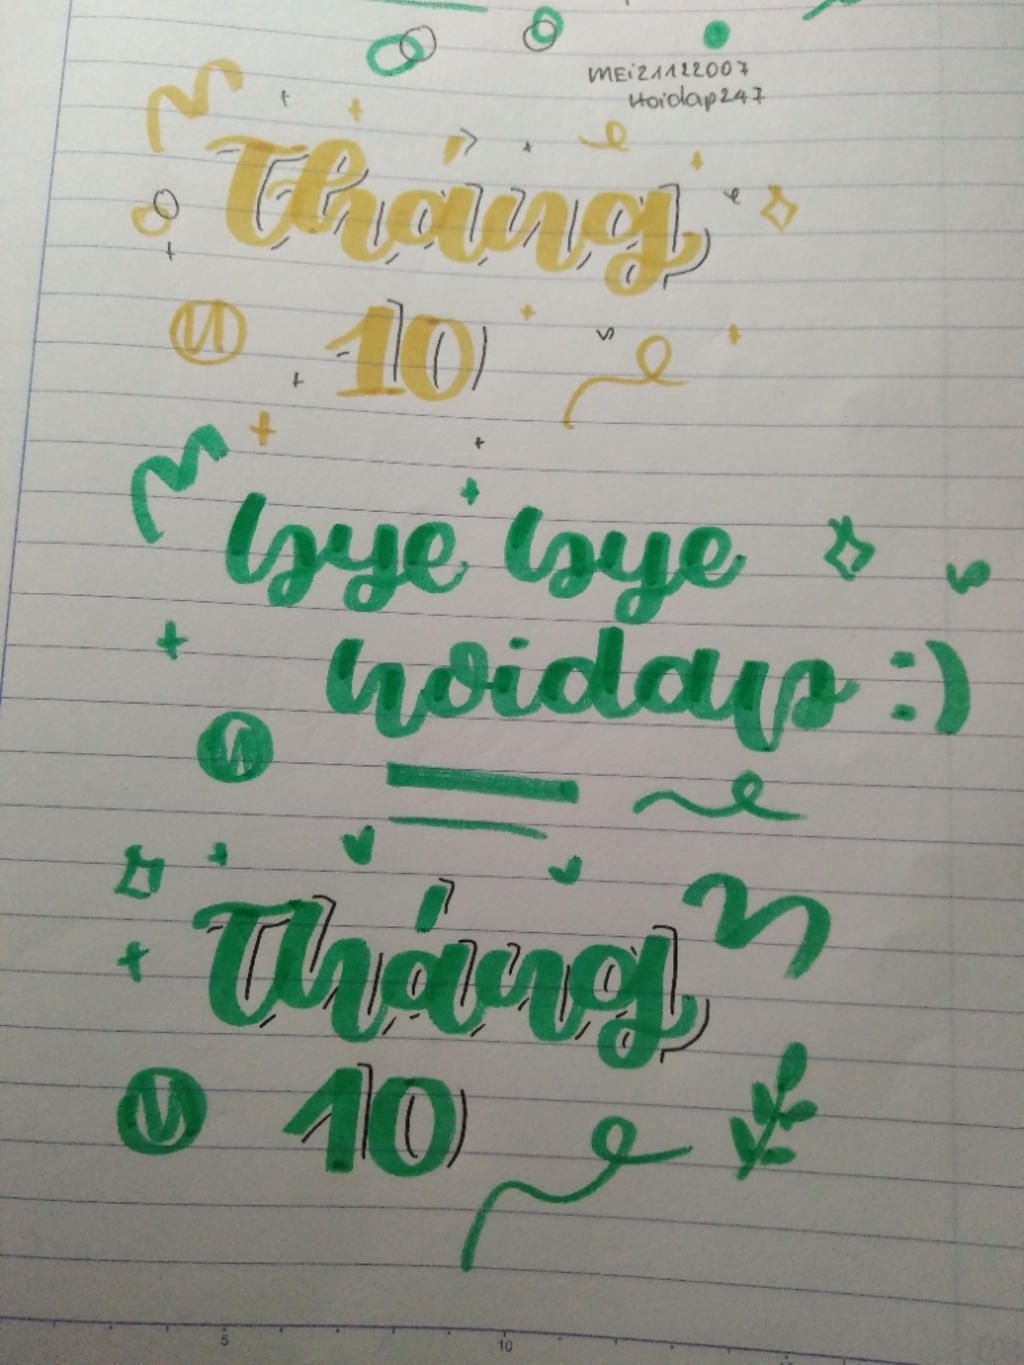 MEi21122007
Hoidap247
Tháng
10
bye bye
hoidap :)
Tháng
10
5
10